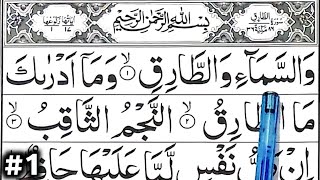 بِسْمِ اللّٰهِ الرَّحْمٰنِ الرَّحِيْمِ
وَالسَّمَآءِ وَالطَّارِقِ ۙ‏ ۱ وَمَاۤ اَدْرٰىكَ
مَا الطَّارِقُ ۙ‏ ۲ النَّجْمُ الثَّاقِبُ ۙ‏ ۳
اِنْ كُلُّ نَفْسٍ لَّمَّا عَلَيْهَا حَافِظٌ
#1